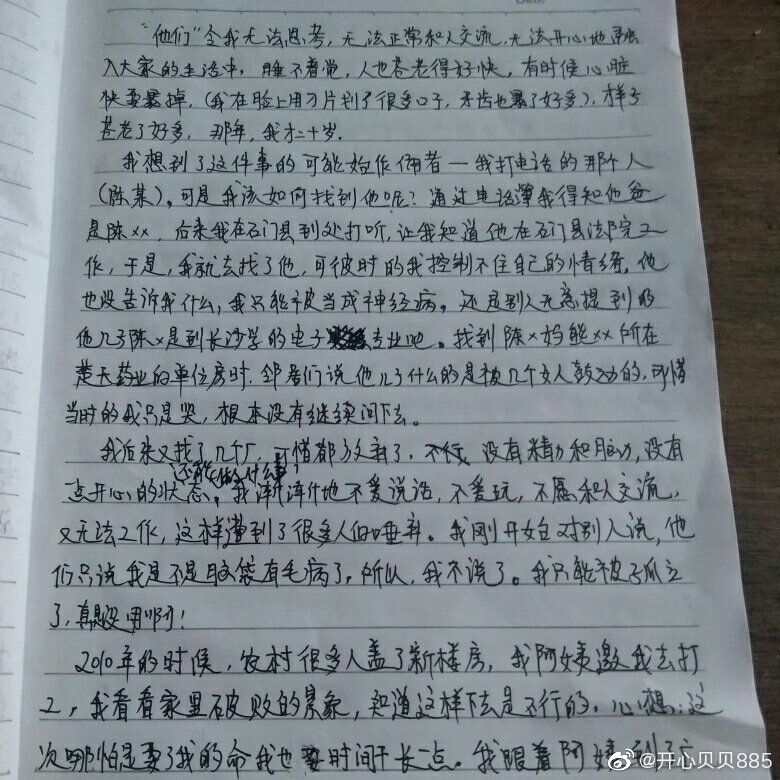 “他们”令我无法思考，无法正常和人交流，无法开心地融
入大家的生活中，睡不着觉，人也苍老得好快，有时候心脏
快要暴掉，(我在脸上用刀片划了很多口子，牙齿也暴了好多)，样子
苍老了好多，那年，我才二十岁。
我想到了这件事的可能始作俑者一我打电话的那个人
(陈某)。可是我该如何找到他呢？通过电话簿我得知他爸
是陈xx，后来我在石门县到处打听，让我知道他在石门县法院工
作，于是，我就去找了他，可彼时的我控制不住自己的情绪，他
也没告诉我什么，我只能被当成神经病。还是别人无意提到的
他儿子陈x是到长沙学的电子专业吧。找到陈x妈熊xx所在
楚天药业的单位房时，邻居们说他儿子什么的是被几个女人鼓动的，可惜
当时的我只是哭，根本没有继续问下去。
我后来又找了几个厂，可惜都放弃了，不行，没有精力和脑力，没有
一点开心的状态。还能做什么事？我渐渐地不爱说话，不爱玩，不愿和人交流，
又无法工作，这样遭到了很多人的唾弃。我刚开始对别人说，他
们只说我是不是脑袋有毛病了，所以，我不说了。我只能被孤立
了，真是没用啊！
2010年的时候，农村很多人盖了新楼房，我阿姨邀我去打
工，我看看家里破败的景象，知道这样下去是不行的，心想：这
次哪怕是要了我的命我也要时间干长一点。我跟着阿姨到了
@开心贝贝885